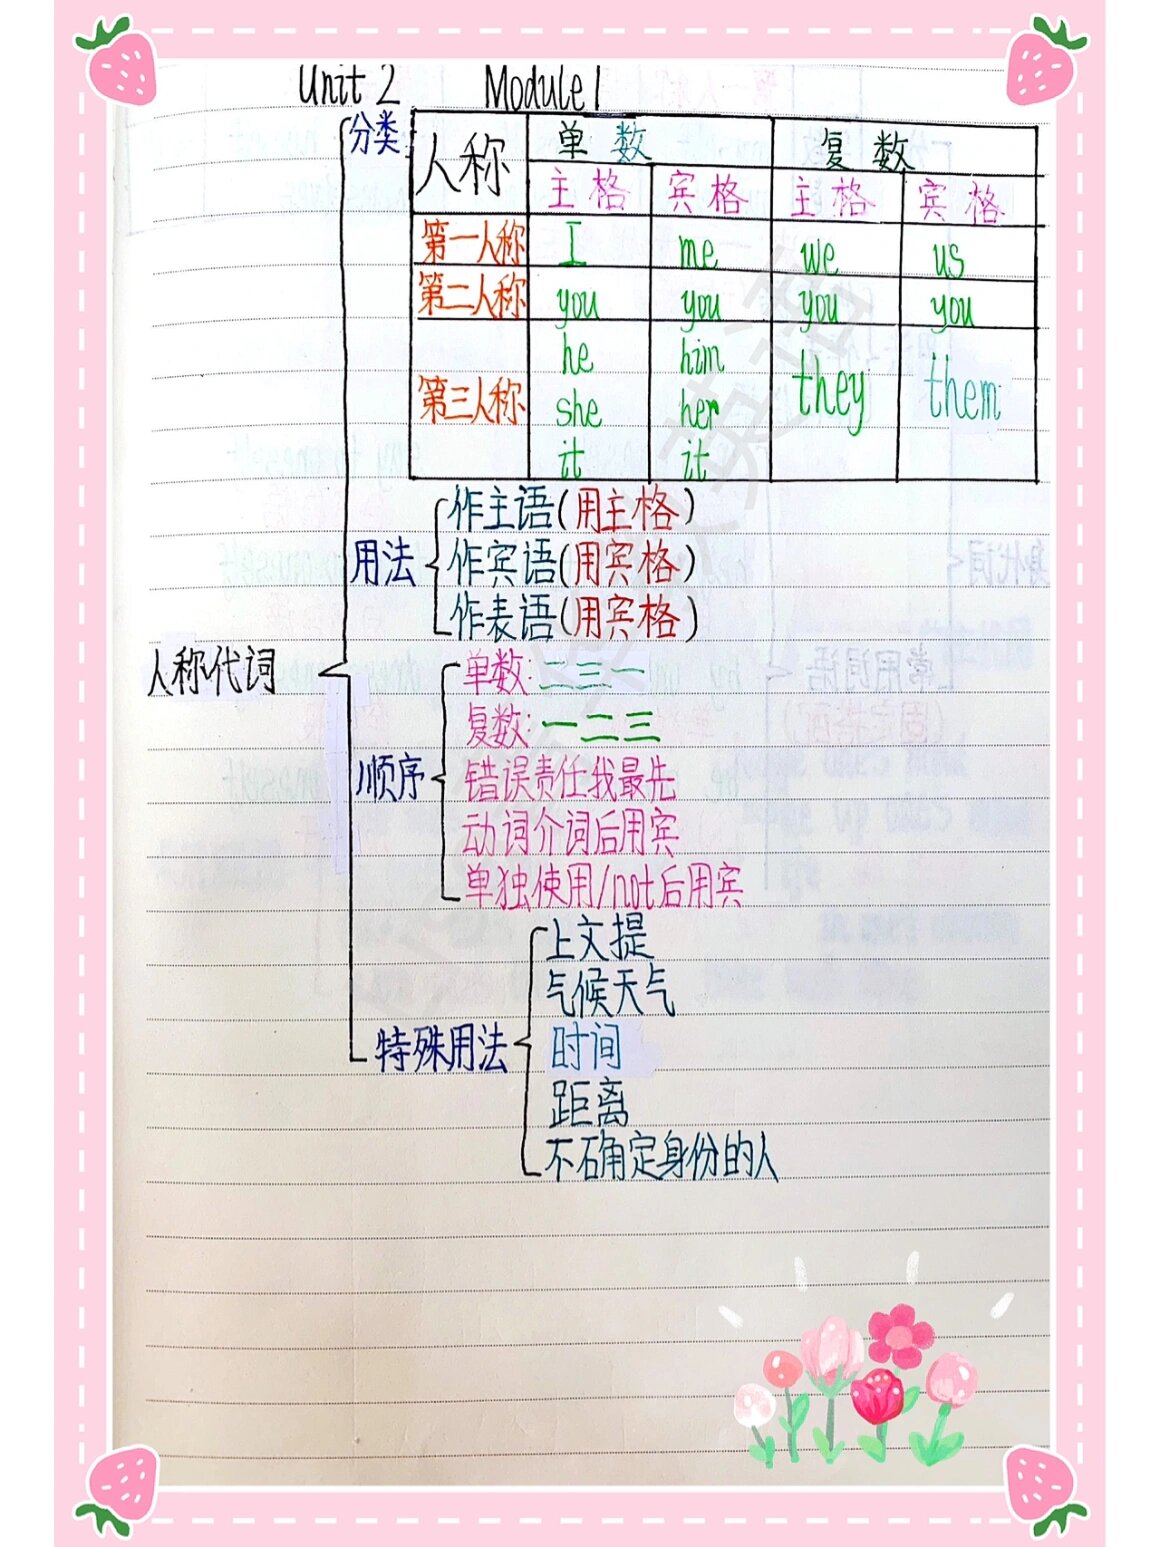 Unit 2 Module 1
分类
人称 单数 复数
主格 宾格 主格 宾格
第一人称 I me we us
第二人称 you you you you
第三人称 he him they them
she her
it it
用法
作主语(用主格)
作宾语(用宾格)
作表语(用宾格)
人称代词
顺序
单数:二三一
复数:一二三
错误责任我最先
动词介词后用宾
单独使用/not后用宾
特殊用法
上文提
气候天气
时间
距离
不确定身份的人